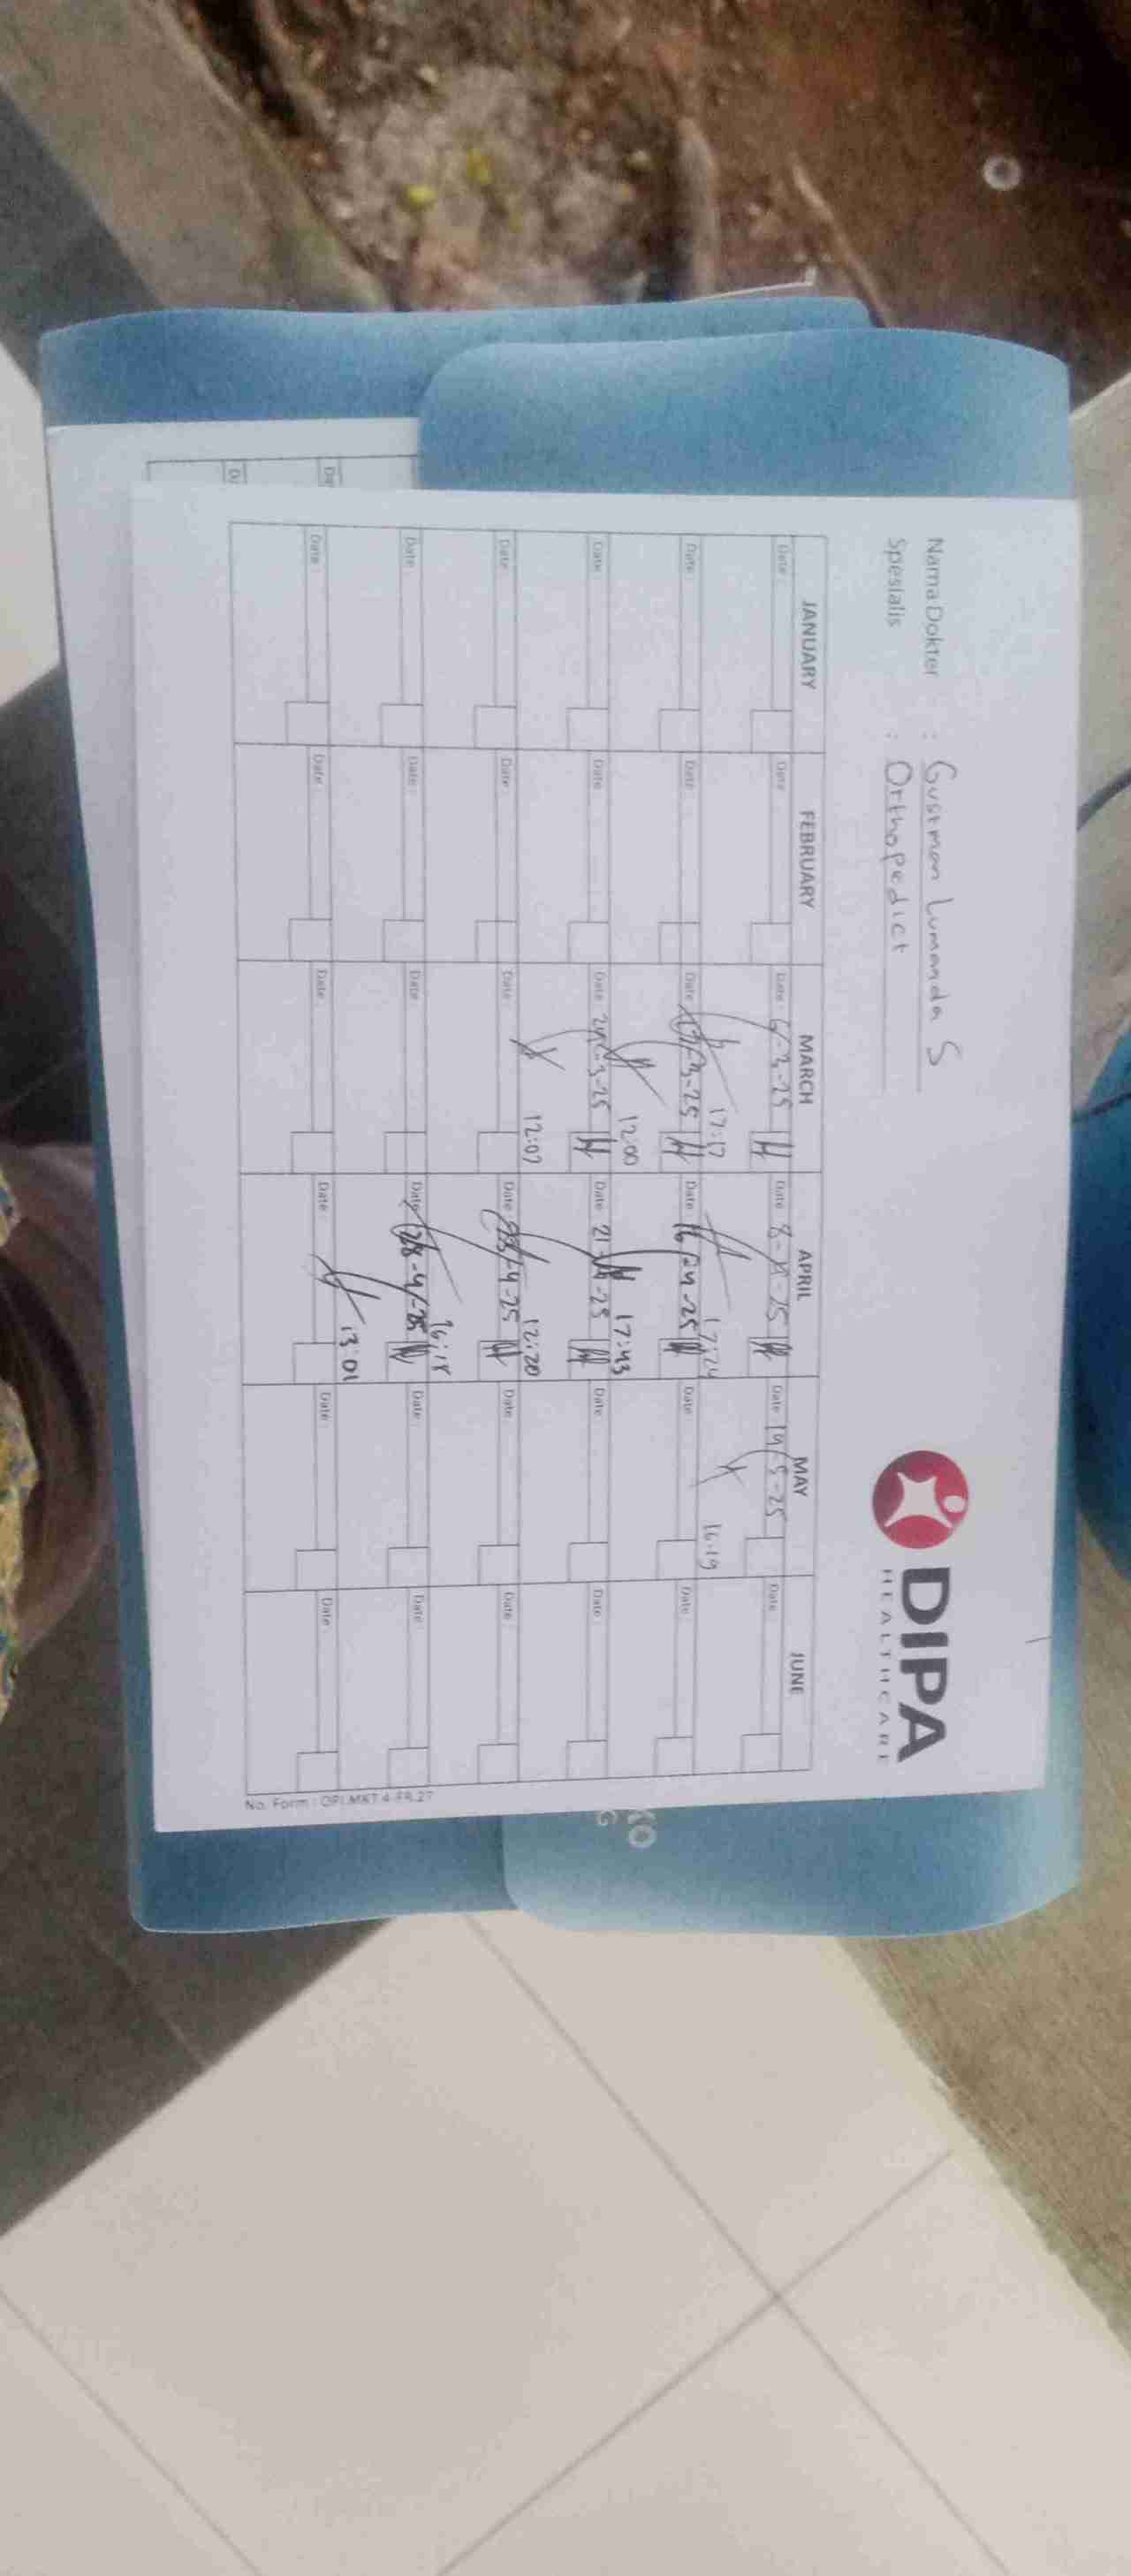 Nama Dokter : Gusrman Lumanda S
Spesialis : Orthopedict
DIPA
HEALTHCARE
JANUARY FEBRUARY MARCH APRIL MAY JUNE
Date : Date : Date : 6-3-25 Date : 8-4-25 Date : 14-5-25 Date :
17:17 17:24 16:19
Date : Date : Date : 17-3-25 Date : 16-04-25 Date : Date :
12:00 17:43
Date : Date : Date : 24-3-25 Date : 21-4-25 Date : Date :
12:07 12:20
Date : Date : Date : Date : -4-25 Date : Date :
Date : Date : Date : Date : 28-4-25 Date : Date :
13:01
Date : Date : Date : Date : Date : Date :
No. Form : DPI.MKT.4-FR.27
KO
G